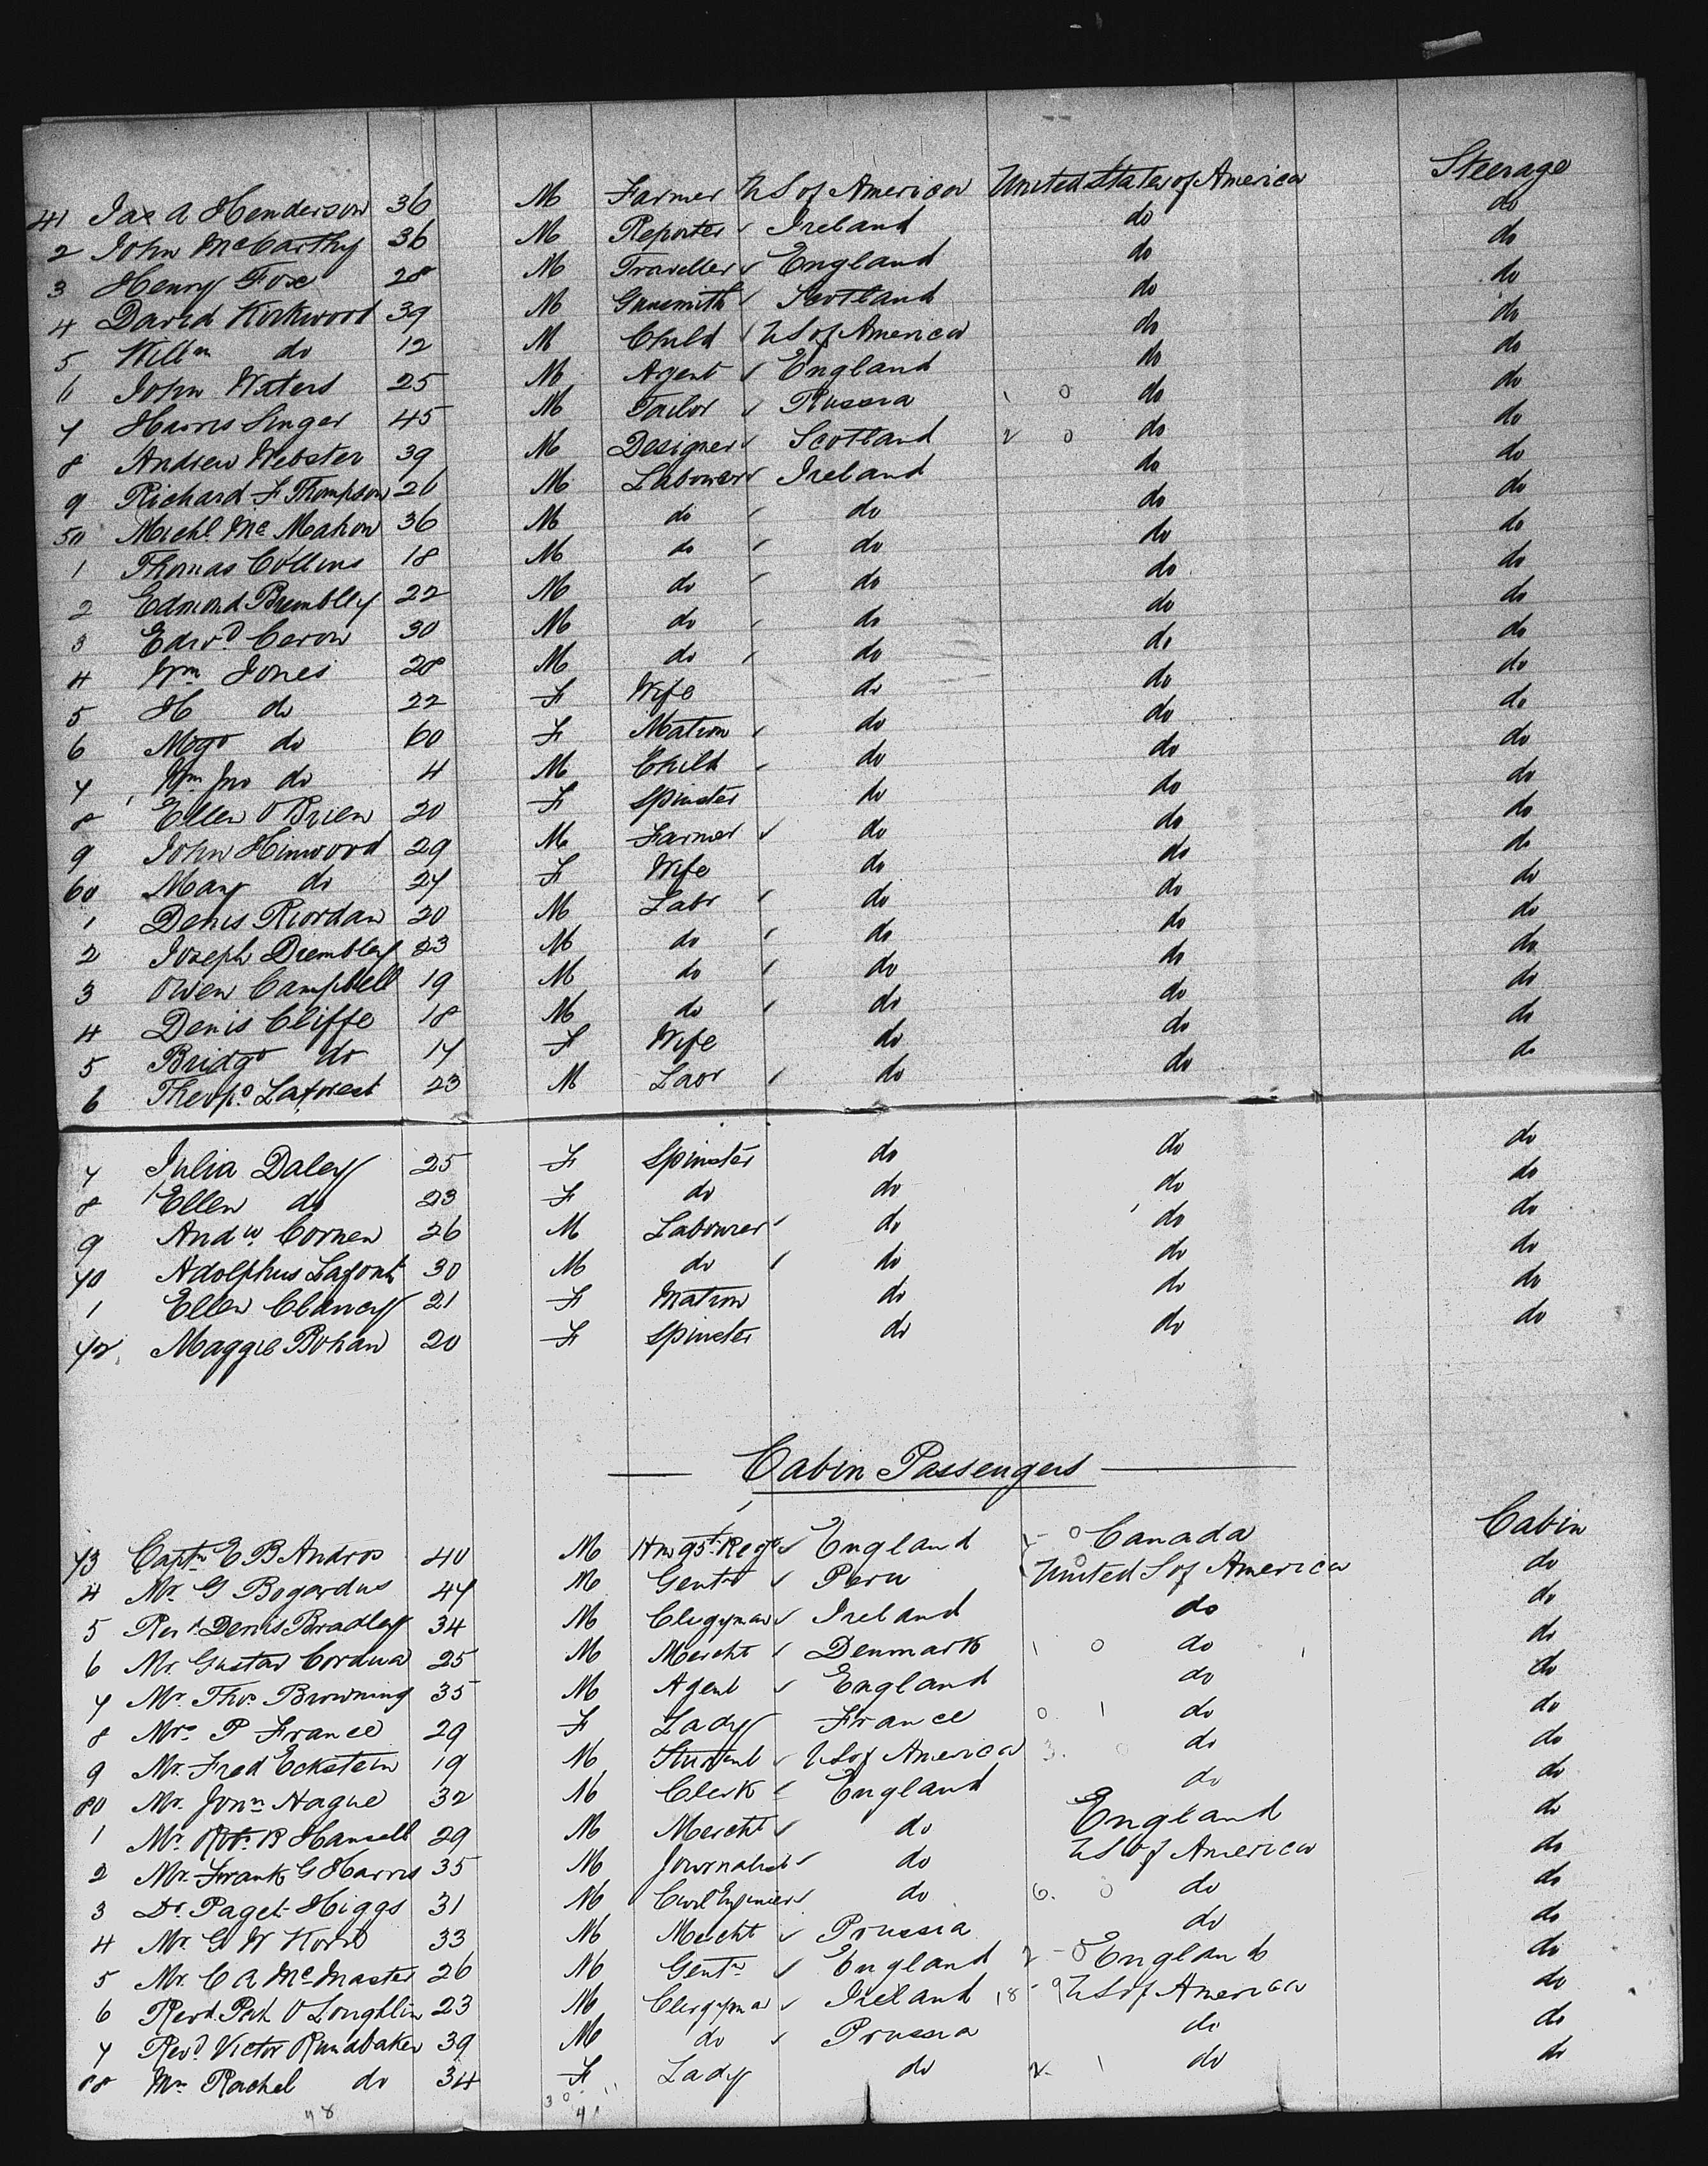 Steerage
41 Jas A Henderson 36 M Farmer U S of America United States of America do
2 John McCarthy 36 M Reporter Ireland do do
3 Henry Fox 28 M Traveller England do do
4 David Kirkwood 39 M Gunsmith Scotland do do
5 Willm do 12 M Child U S of America do do
6 John Waters 25 M Agent England do do
7 Harris Singer 45 M Tailor Russia 1 0 do do
8 Andrew Webster 39 M Designer Scotland 2 0 do do
9 Richard F Thompson 26 M Labourer Ireland do do
50 Michl McMahon 36 M do do do do
1 Thomas Collins 18 M do do do do
2 Edmond Brembley 22 M do do do do
3 Edwd Ceron 30 M do do do do
4 Wm Jones 28 M do do do do
5 H do 22 F Wife do do do
6 Mgt do 60 F Matron do do do
7 Wm Jno do 4 M Child do do do
8 Ellen O Brien 20 F Spinster do do do
9 John Hinwood 29 M Farmer do do do
60 Mary do 27 F Wife do do do
1 Denis Riordan 20 M Labr do do do
2 Joseph Drembley 23 M do do do do
3 Owen Campbell 19 M do do do do
4 Denis Cliffe 18 M do do do do
5 Bridgt do 17 F Wife do do do
6 Theopo Laforest 23 M Laor do do do
7 Julia Daley 25 F Spinster do do do
8 Ellen do 23 F do do do do
9 Andw Cornen 26 M Labourer do do do
70 Adolphus Lafont 30 M do do do do
1 Ellen Clancy 21 F Matron do do do
72 Maggie Bohan 20 F Spinster do do do
Cabin Passengers
73 Captn E B Andros 40 M England Canada Cabin
4 Mr G Bogardus 47 M Gentn Peru United S of America do
5 Revd Denis Bradley 34 M Clergyman Ireland do do
6 Mr Gustav Cordua 25 M Mercht Denmark 1 0 do do
7 Mr Thos Browning 35 M Agent England do do
8 Mrs P France 29 F Lady France 0 1 do do
9 Mr Fred Eckstein 19 M Student U S of America 3. 0 do do
80 Mr Jonn Hague 32 M Clerk England do do
1 Mr Robt B Hansell 29 M Mercht do England do
2 Mr Frank G Harris 35 M Journalist do U S of America do
3 Dr Paget Higgs 31 M Civil Engineer do 6. 0 do do
4 Mr G W 33 M Mercht Prussia do do
5 Mr C A McMaster 26 M Gentn England 2 - 0 England do
6 Revd Pat O Loughlin 23 M Clergyma Ireland 18 - 9 U S of America do
7 Revd Victor Rundbaken 39 M do Prussia do do
88 Mrs Rachel do 34 F Lady do 2 1 do do